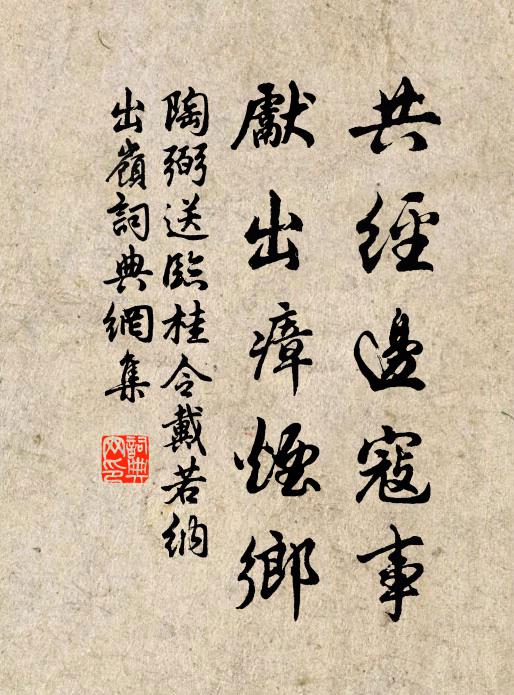 共經邊寇事
獻出瘴煙鄉
陶弼送臨桂令戴若納
出嶺詞典網集
詞典網印